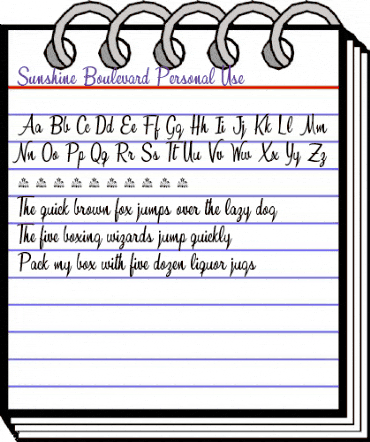 Sunshine Boulevard Personal Use
Aa Bb Cc Dd Ee Ff Gg Hh Ii Jj Kk Ll Mm
Nn Oo Pp Qq Rr Ss Tt Uu Vv Ww Xx Yy Zz
The quick brown fox jumps over the lazy dog
The five boxing wizards jump quickly
Pack my box with five dozen liquor jugs